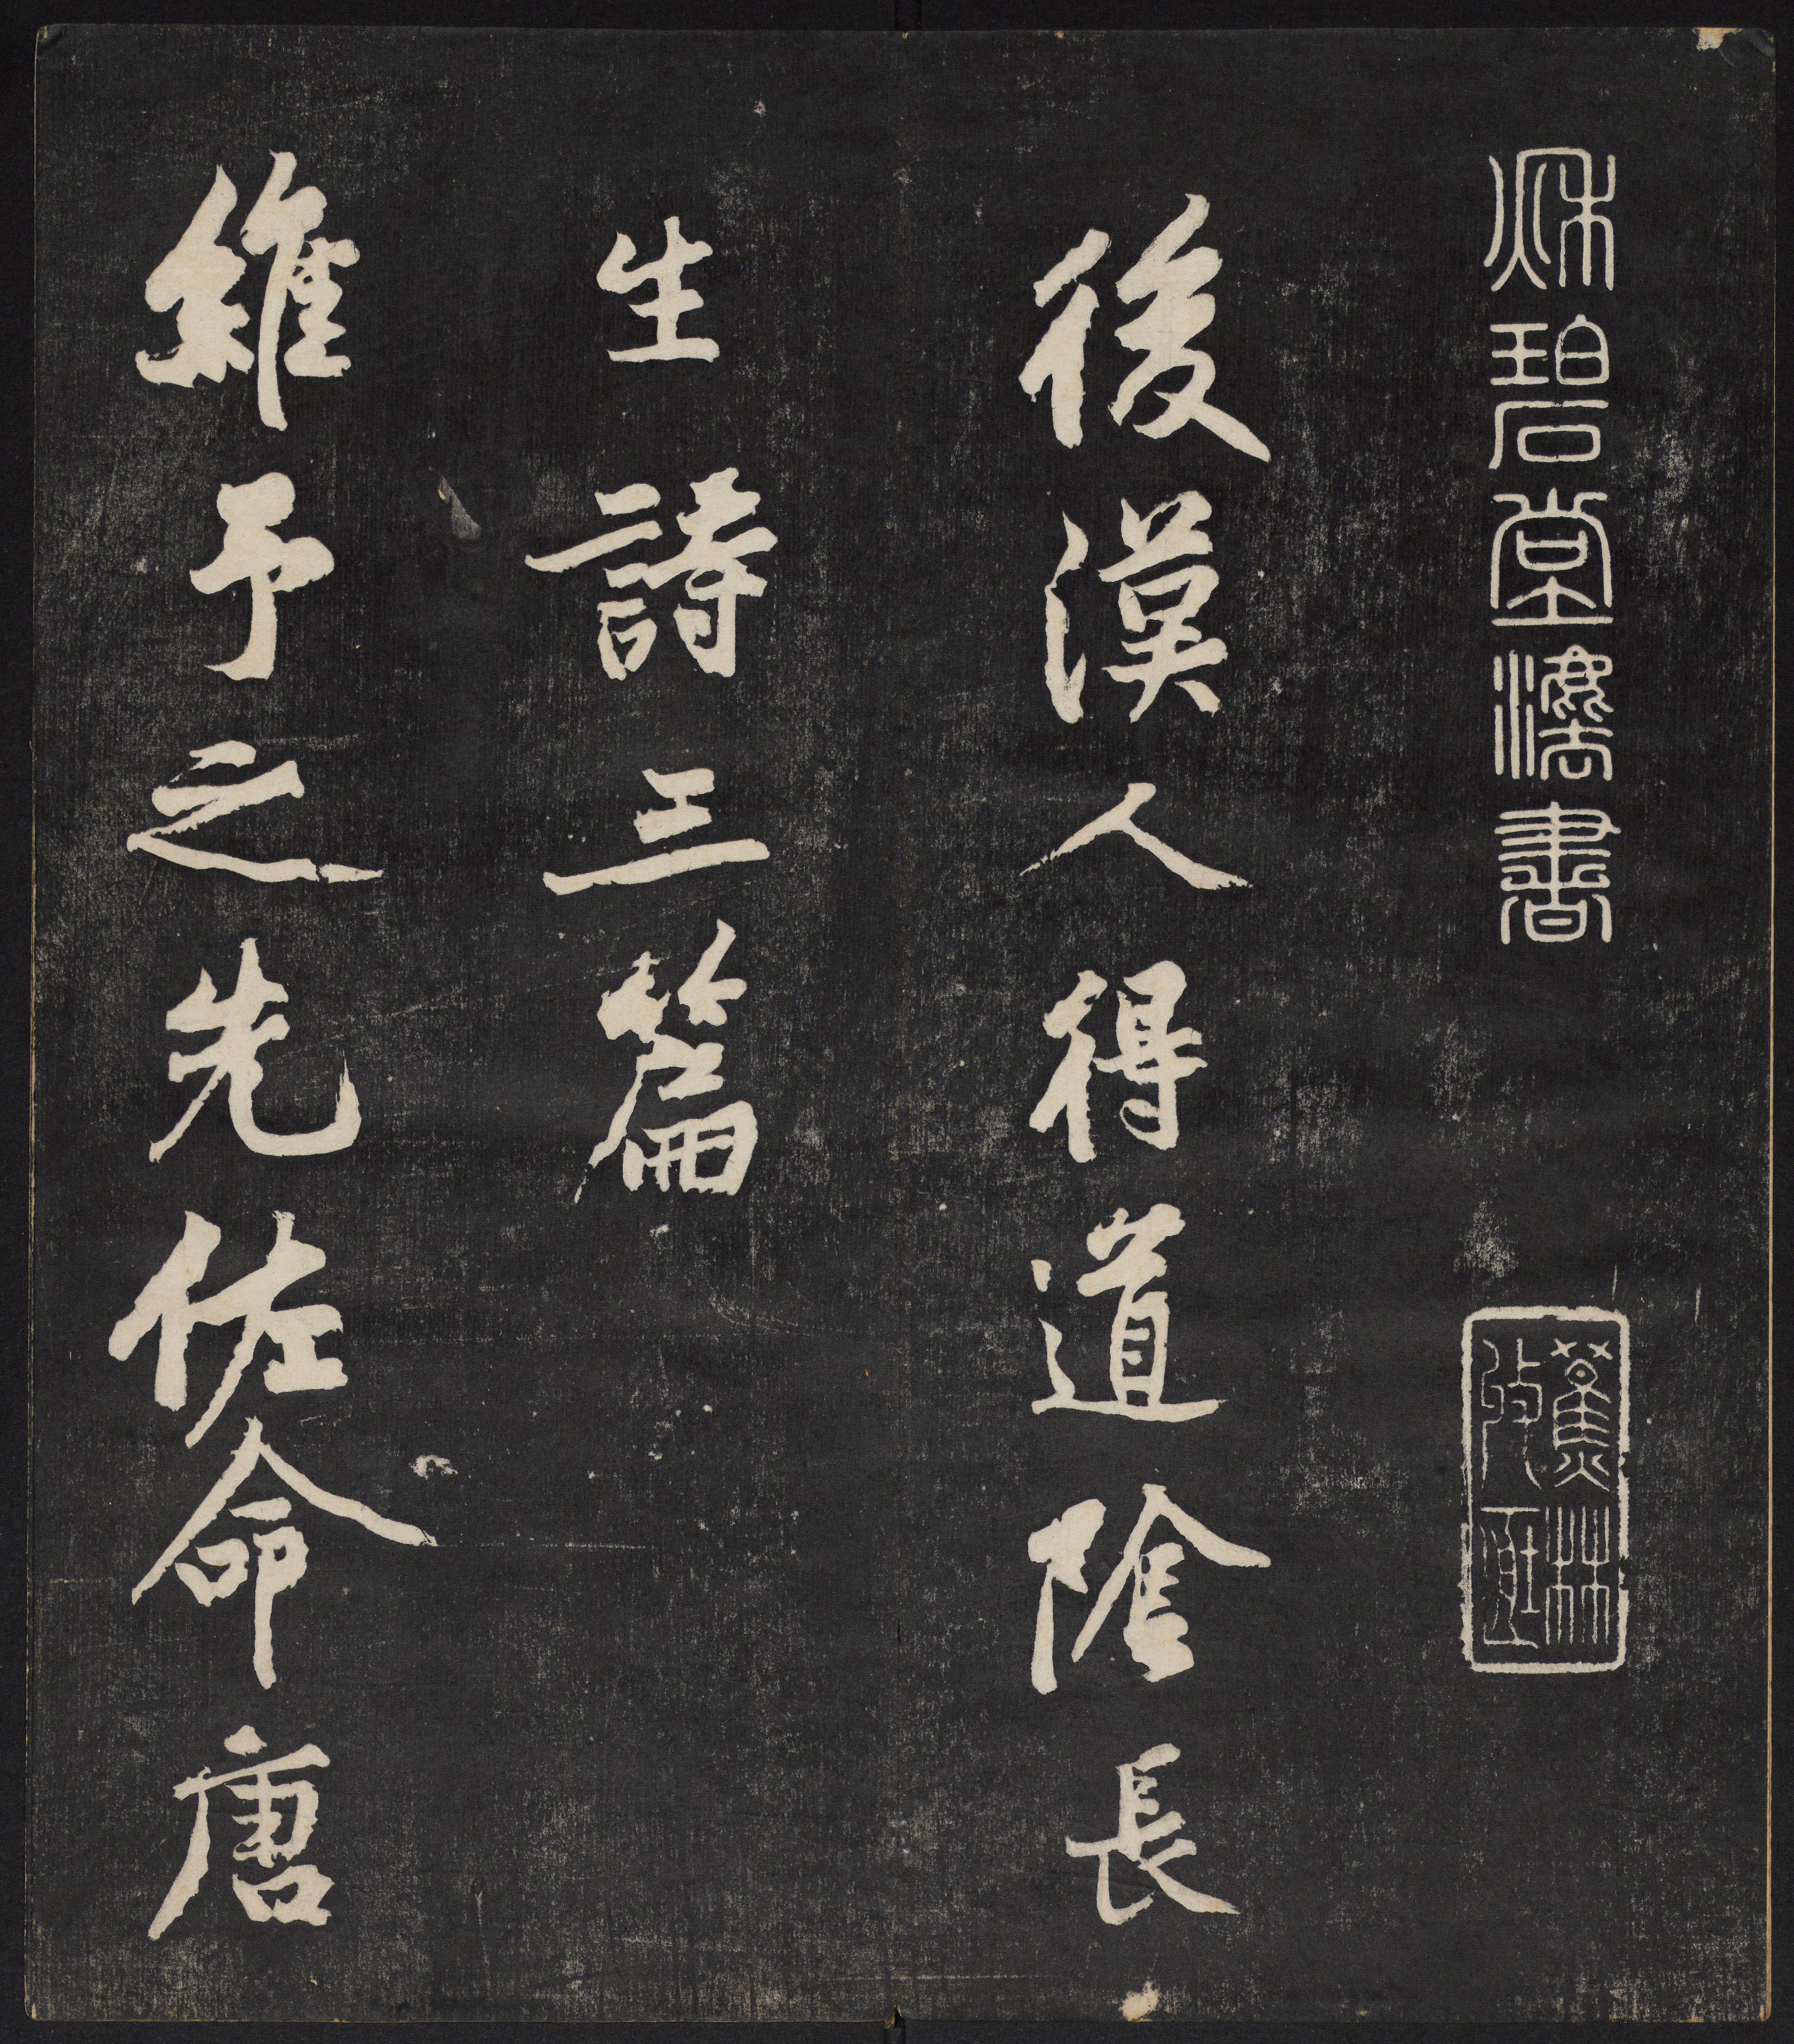 秋碧堂法書
蕉林
後漢人得道陰長
生詩三篇
維予之先佐命唐